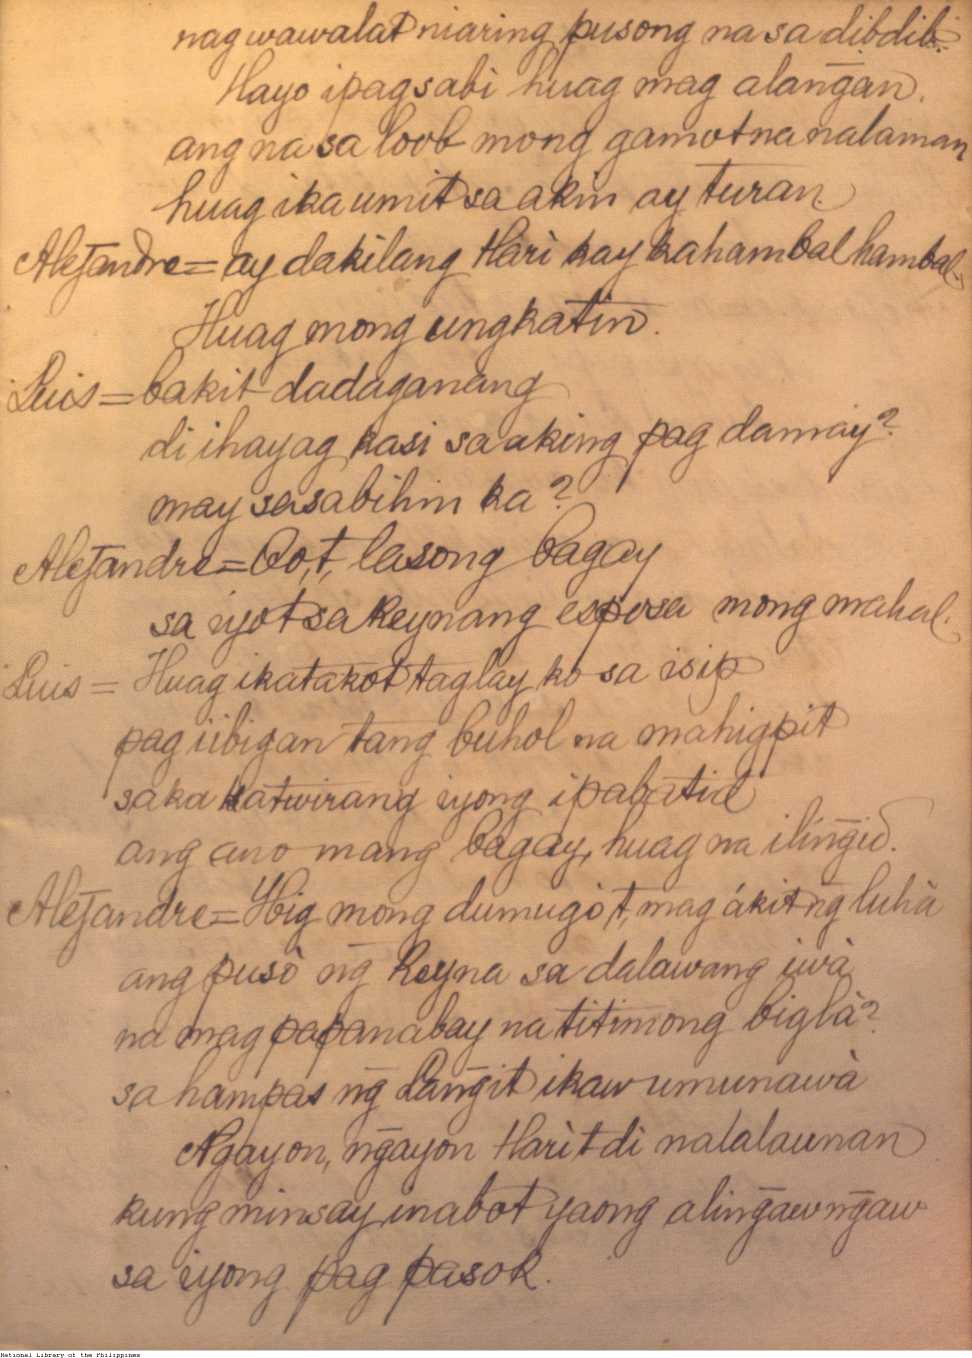 nagwawalat niaring pusong na sa dibdib.
Hayo ipagsabi huag mag alan̄gan.
ang na sa loob mong gamot na nalaman
huag ikaumit sa akin ay turan.
Alejandre = ay dakilang Hari kay kahambalhambal,
Huag mong ungkatin.
Luis = bakit dadaganang
di ihayag kasi sa aking pag damay?
may sasabihin ka?
Alejandre = Oo,t, lasong bagay
sa iyot sa Reynang esposa mong mahal.
Luis = Huag ikatakot taglay ko sa isip
pag iibigan tang buhol na mahigpit
saka katwirang iyong ipabatid
ang ano mang bagay, huag na ilin̄gid.
Alejandre = Ybig mong dumugò,t, mag ákit n̄g luhà
ang pusò n̄g Reyna sa dalawang iwà
na mag papanabay na titimong biglà?
sa hampas n̄g Lan̄git ikaw umunawà
N̄gayon, n̄gayon Harìt di nalalaunan
kung minsay inabot yaong alin̄gawn̄gaw
sa iyong pag pasok.
National Library of the Philippines